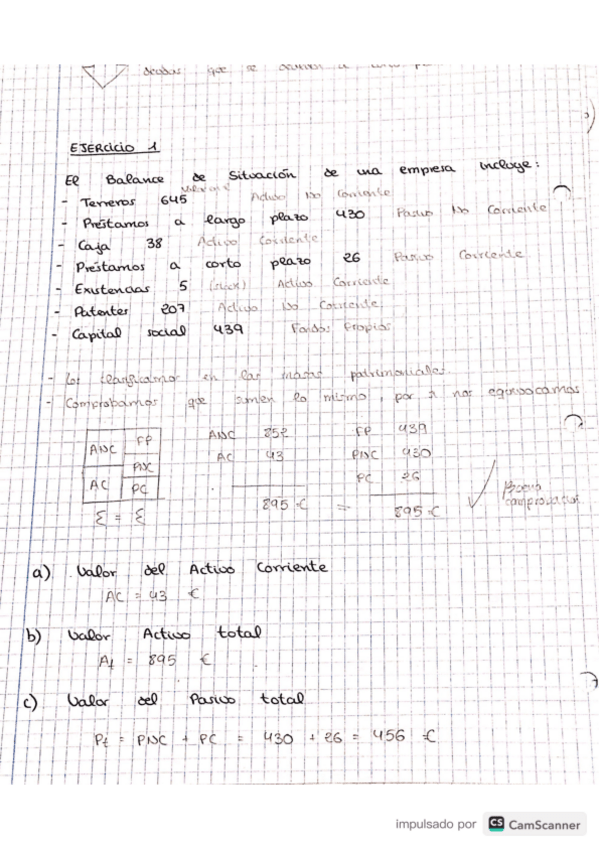 que se
EJERCICIO 1
El Balance de Situación de una empresa incluye:
- Terreros 645 Activo No Corriente
- Préstamos a largo plazo 430 Pasivo No Corriente
- Caja 38 Activo Corriente
- Préstamos a corto plazo 26 Pasivo Corriente
- Existencias 5 (stock) Activo Corriente
- Patentes 207 Activo No Corriente
- Capital social 439 Fondos Propios
- Los clasificamos en las masas patrimoniales.
- Comprobamos que sumen lo mismo, por si nos equivocamos
ANC FP
PNC
AC PC
Σ = Σ
ANC 852 FP 439
AC 43 PNC 430
PC 26
895 € = 895 €
Buena comprobación
a) Valor del Activo Corriente
AC = 43 €
b) Valor Activo total
At = 895 €
c) Valor del Pasivo total
Pt = PNC + PC = 430 + 26 = 456 €
impulsado por CS CamScanner